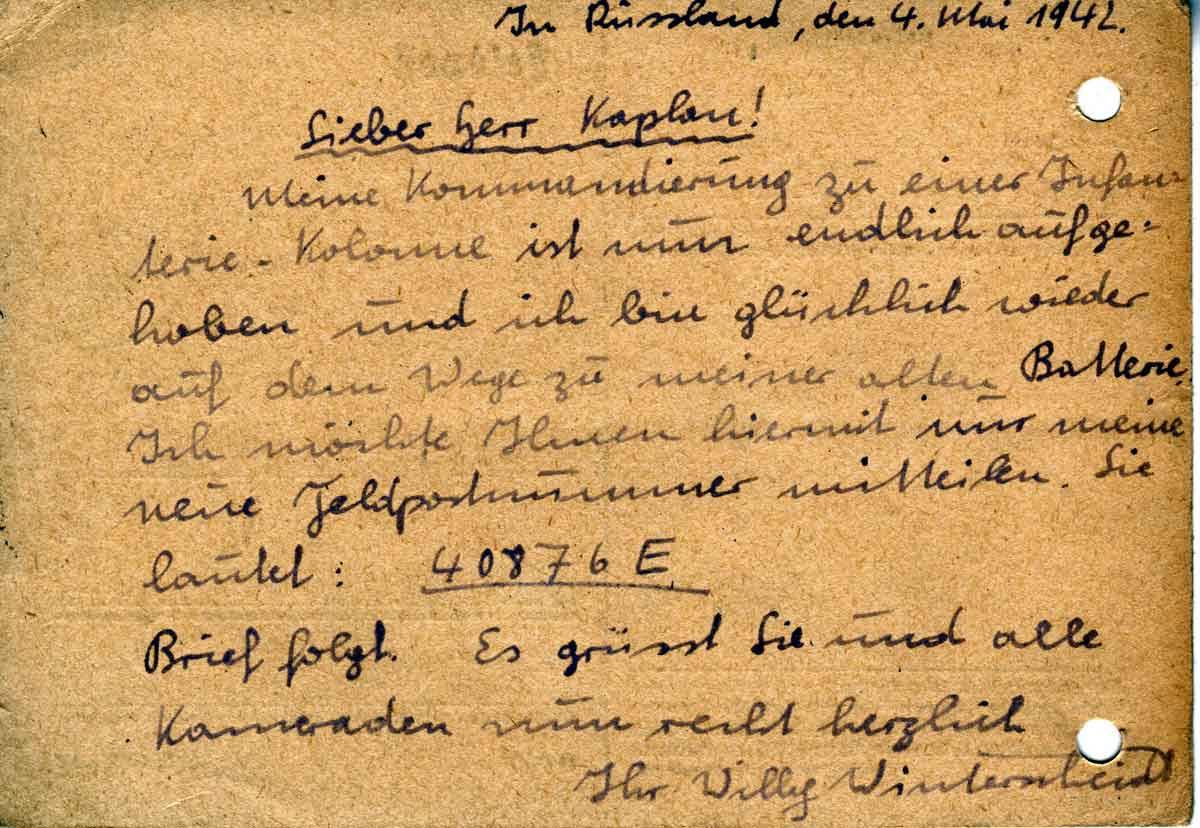 In Russland, den 4. Mai 1942.
Lieber Herr Kaplan!
Meine Kommandierung zu einer Infan-
terie-Kolonne ist nun endlich aufge-
hoben und ich bin glücklich wieder
auf dem Wege zu meiner alten Batterie.
Ich möchte Ihnen hiermit nur meine
neue Feldpostnummer mitteilen. Sie
lautet: 40876 E
Brief folgt. Es grüsst Sie und alle
Kameraden nun recht herzlich
Ihr Willy Winterscheidt